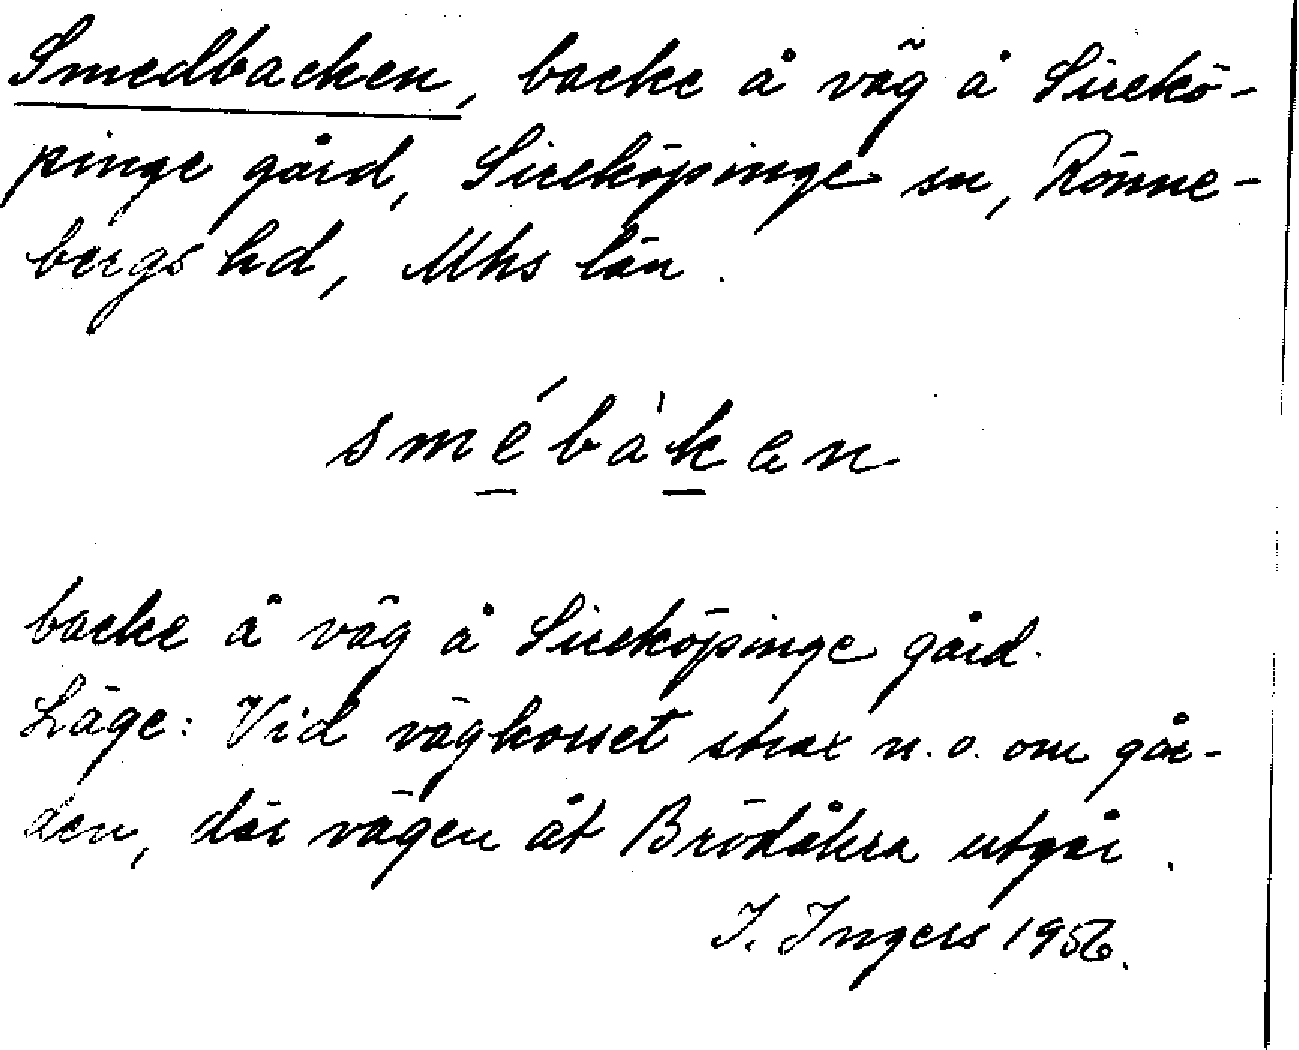 Smedbacken, backe å väg å Sirekö-
pinge gård, Sireköpinge sn, Rönne-
bergs hd, Mhs län.
smébàken
backe å väg å Sireköpinge gård.
Läge: Vid vägkorset strax n.o. om går-
den, där vägen åt Brödåkra utgår.
I. Ingers 1956.